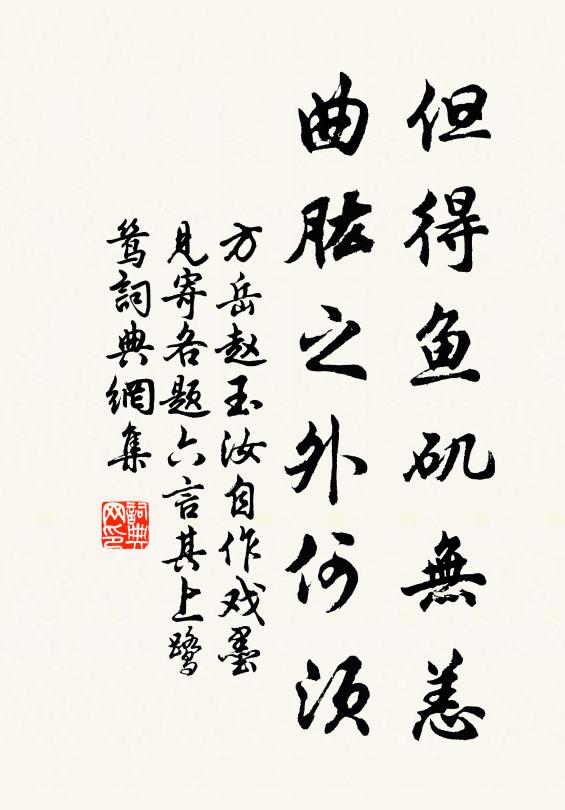 但得鱼矶無恙
曲肱之外何须
方岳赵玉汝自作戏墨
见寄各题六言其上鹭
鸶詞典網集
詞典网印